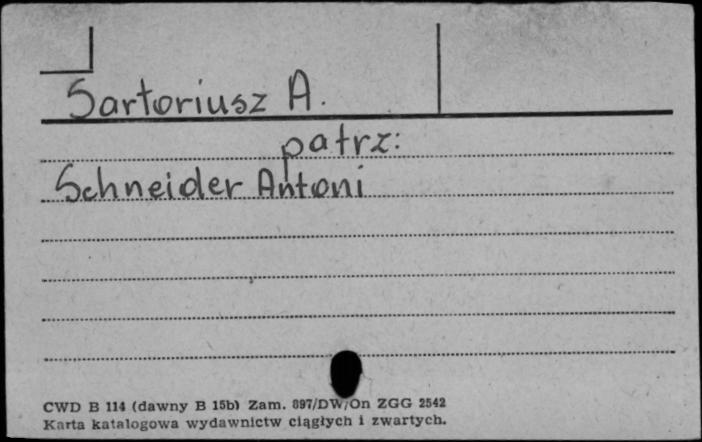 Sartoriusz A.
patrz:
Schneider Antoni
CWD B 114 (dawny B 15b) Zam. 897/DW/On ZGG 2542
Karta katalogowa wydawnictw ciągłych i zwartych.